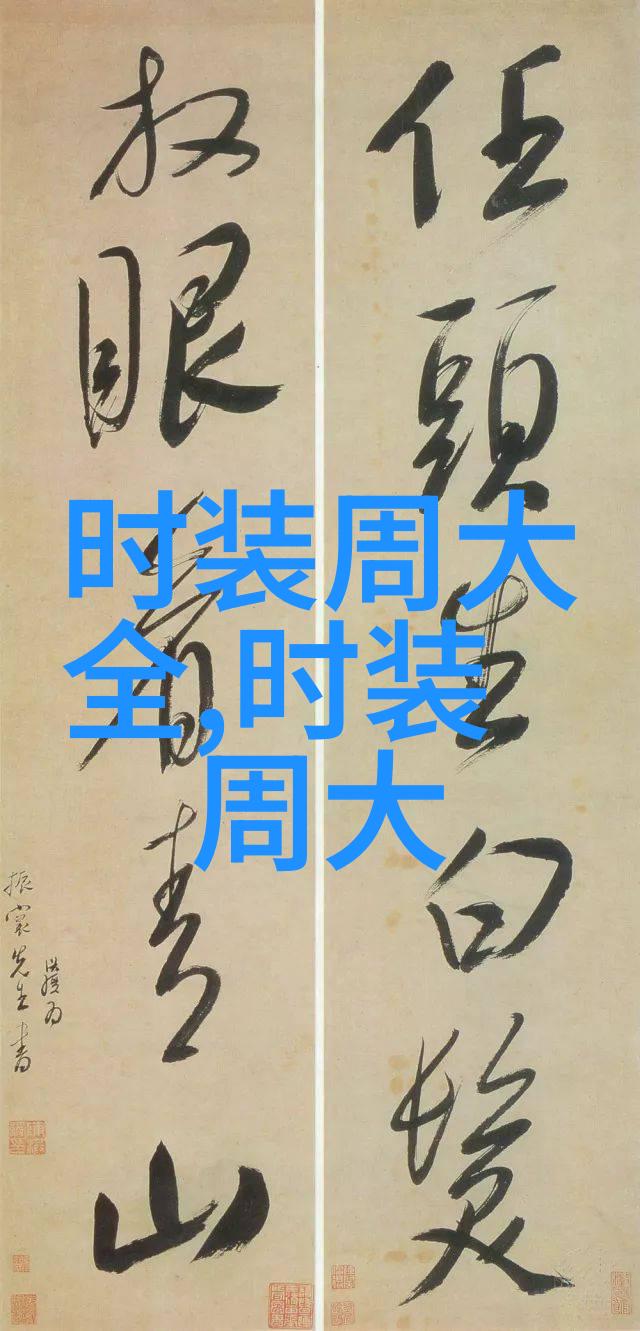 任頭生白髮
放眼看青山
先生書
时装周大
全,时装
周大